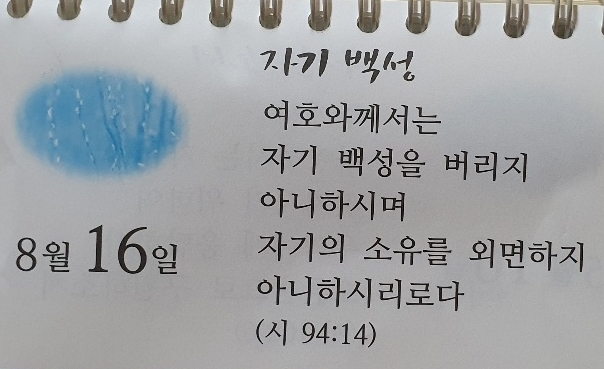 자기 백성
여호와께서는
자기 백성을 버리지
아니하시며
자기의 소유를 외면하지
아니하시리로다
(시 94:14)
8월 16일